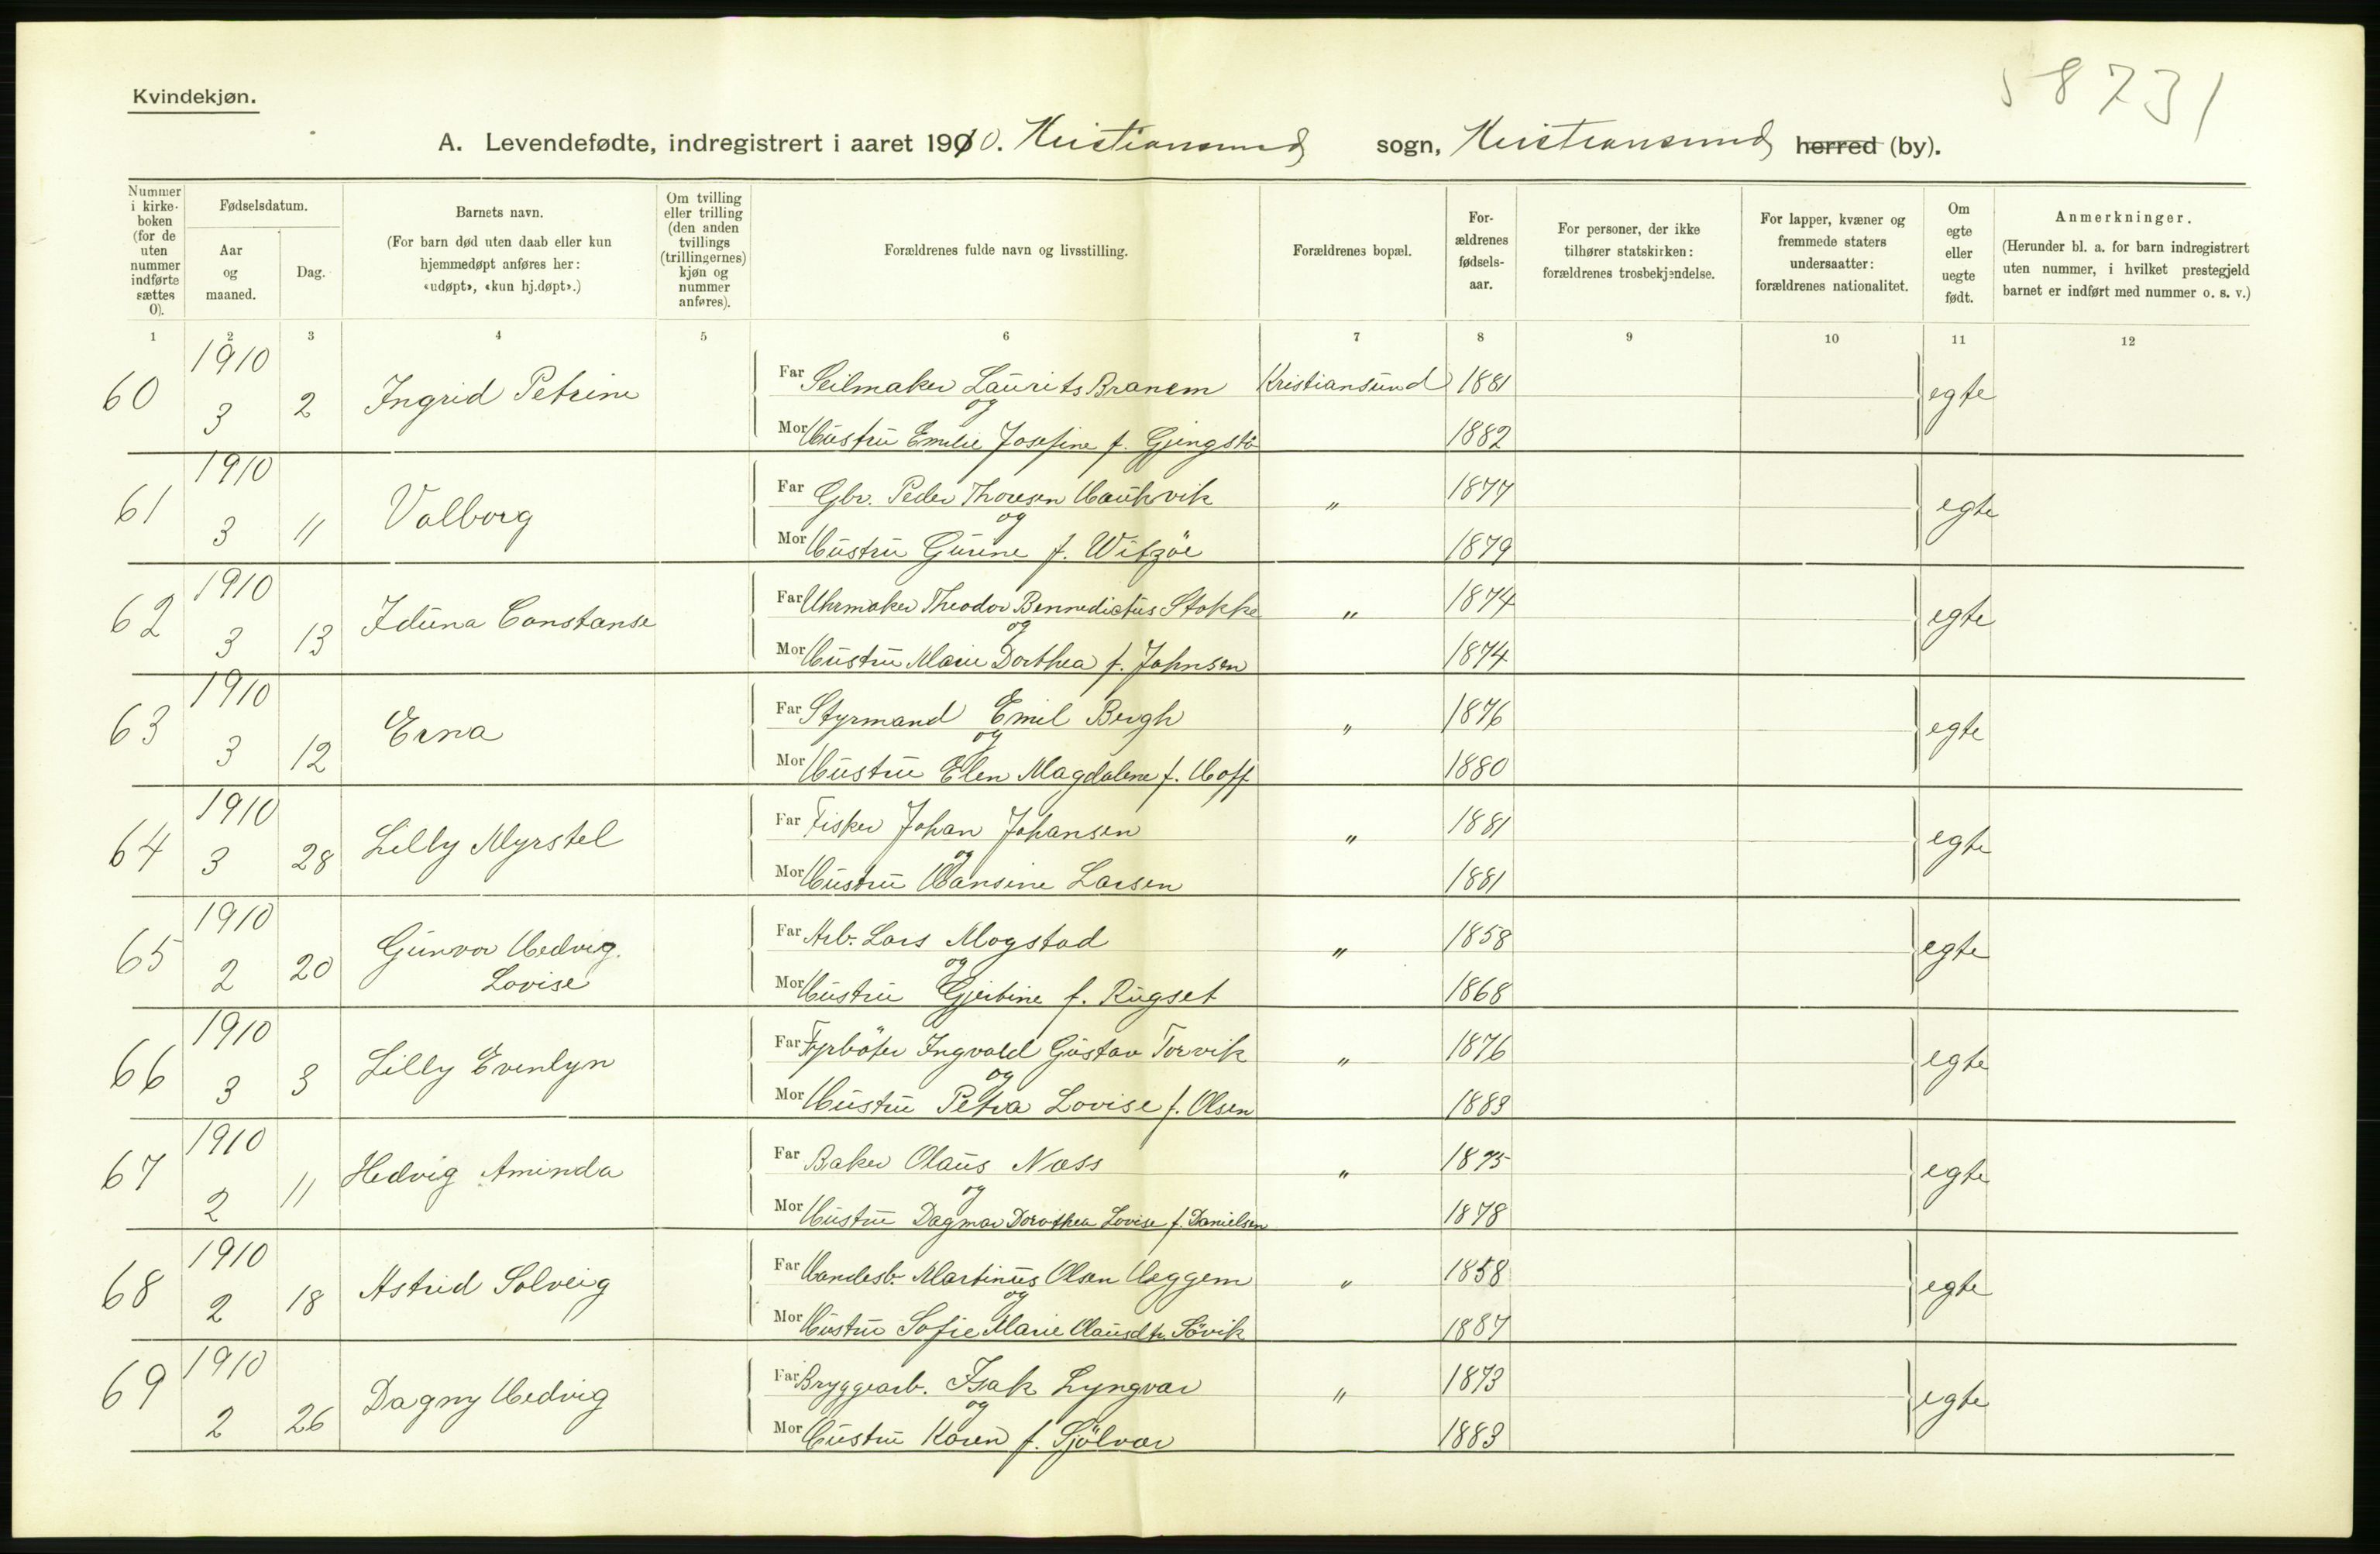 58731
Kvindekjøn.
A. Levendefødte, indregistrert i aaret 1910. Kristiansund sogn, Kristiansund herred (by).
Nummer i kirke-boken (for de uten nummer indførte sættes 0).
Fødselsdatum.
Aar og maaned.
Dag.
Barnets navn.
(For barn død uten daab eller kun hjemmedøpt anføres her: «udøpt», «kun hj.døpt».)
Om tvilling eller trilling (den anden tvillings (trillingernes) kjøn og nummer anføres).
Forældrenes fulde navn og livsstilling.
Forældrenes bopæl.
For-ældrenes fødsels-aar.
For personer, der ikke tilhører statskirken: forældrenes trosbekjendelse.
For lapper, kvæner og fremmede staters undersaatter: forældrenes nationalitet.
Om egte eller uegte født.
Anmerkninger.
(Herunder bl. a. for barn indregistrert uten nummer, i hvilket prestegjeld barnet er indført med nummer o. s. v.)
1 2 3 4 5 6 7 8 9 10 11 12
60 1910 3 2 Ingrid Petrine Far Seilmaker Laurits Branem Kristiansund 1881 egte
og
Mor Hustru Emilie Josefine f. Gjengstø 1882
61 1910 3 11 Valborg Far Gbr. Peder Thoresen Haukvik " 1877 egte
og
Mor Hustru Gurine f. Witzöe 1879
62 1910 3 13 Iduna Constanse Far Uhrmaker Theodor Bennedictus Stokke " 1874 egte
og
Mor Hustru Marie Dorthea f. Johnsen 1874
63 1910 3 12 Erna Far Styrmand Emil Bergh " 1876 egte
og
Mor Hustru Elen Magdalene f. Hoff 1880
64 1910 3 28 Lilly Myrstel Far Fisker Johan Johansen " 1881 egte
og
Mor Hustru Hansine Larsen 1881
65 1910 2 20 Gunvor Hedvig. Lovise Far Arb. Lars Mogstad " 1858 egte
og
Mor Hustru Gjertine f. Rugset 1868
66 1910 3 3 Lilly Evenlyn Far Fyrböter Ingvald Gustav Torvik " 1876 egte
og
Mor Hustru Petra Lovise f. Olsen 1883
67 1910 2 11 Hedvig Aminda Far Baker Olaus Næss " 1875 egte
og
Mor Hustru Dagmar Dorothea Lovise f. Danielsen 1878
68 1910 2 18 Astrid Solveig Far Handesb. Martinus Olsen Heggem " 1858 egte
og
Mor Hustru Sofie Marie Olausdtr. Sövik 1887
69 1910 2 26 Dagny Hedvig Far Bryggearb. Isak Lyngvær " 1873 egte
og
Mor Hustru Karen f. Sjölvær 1883